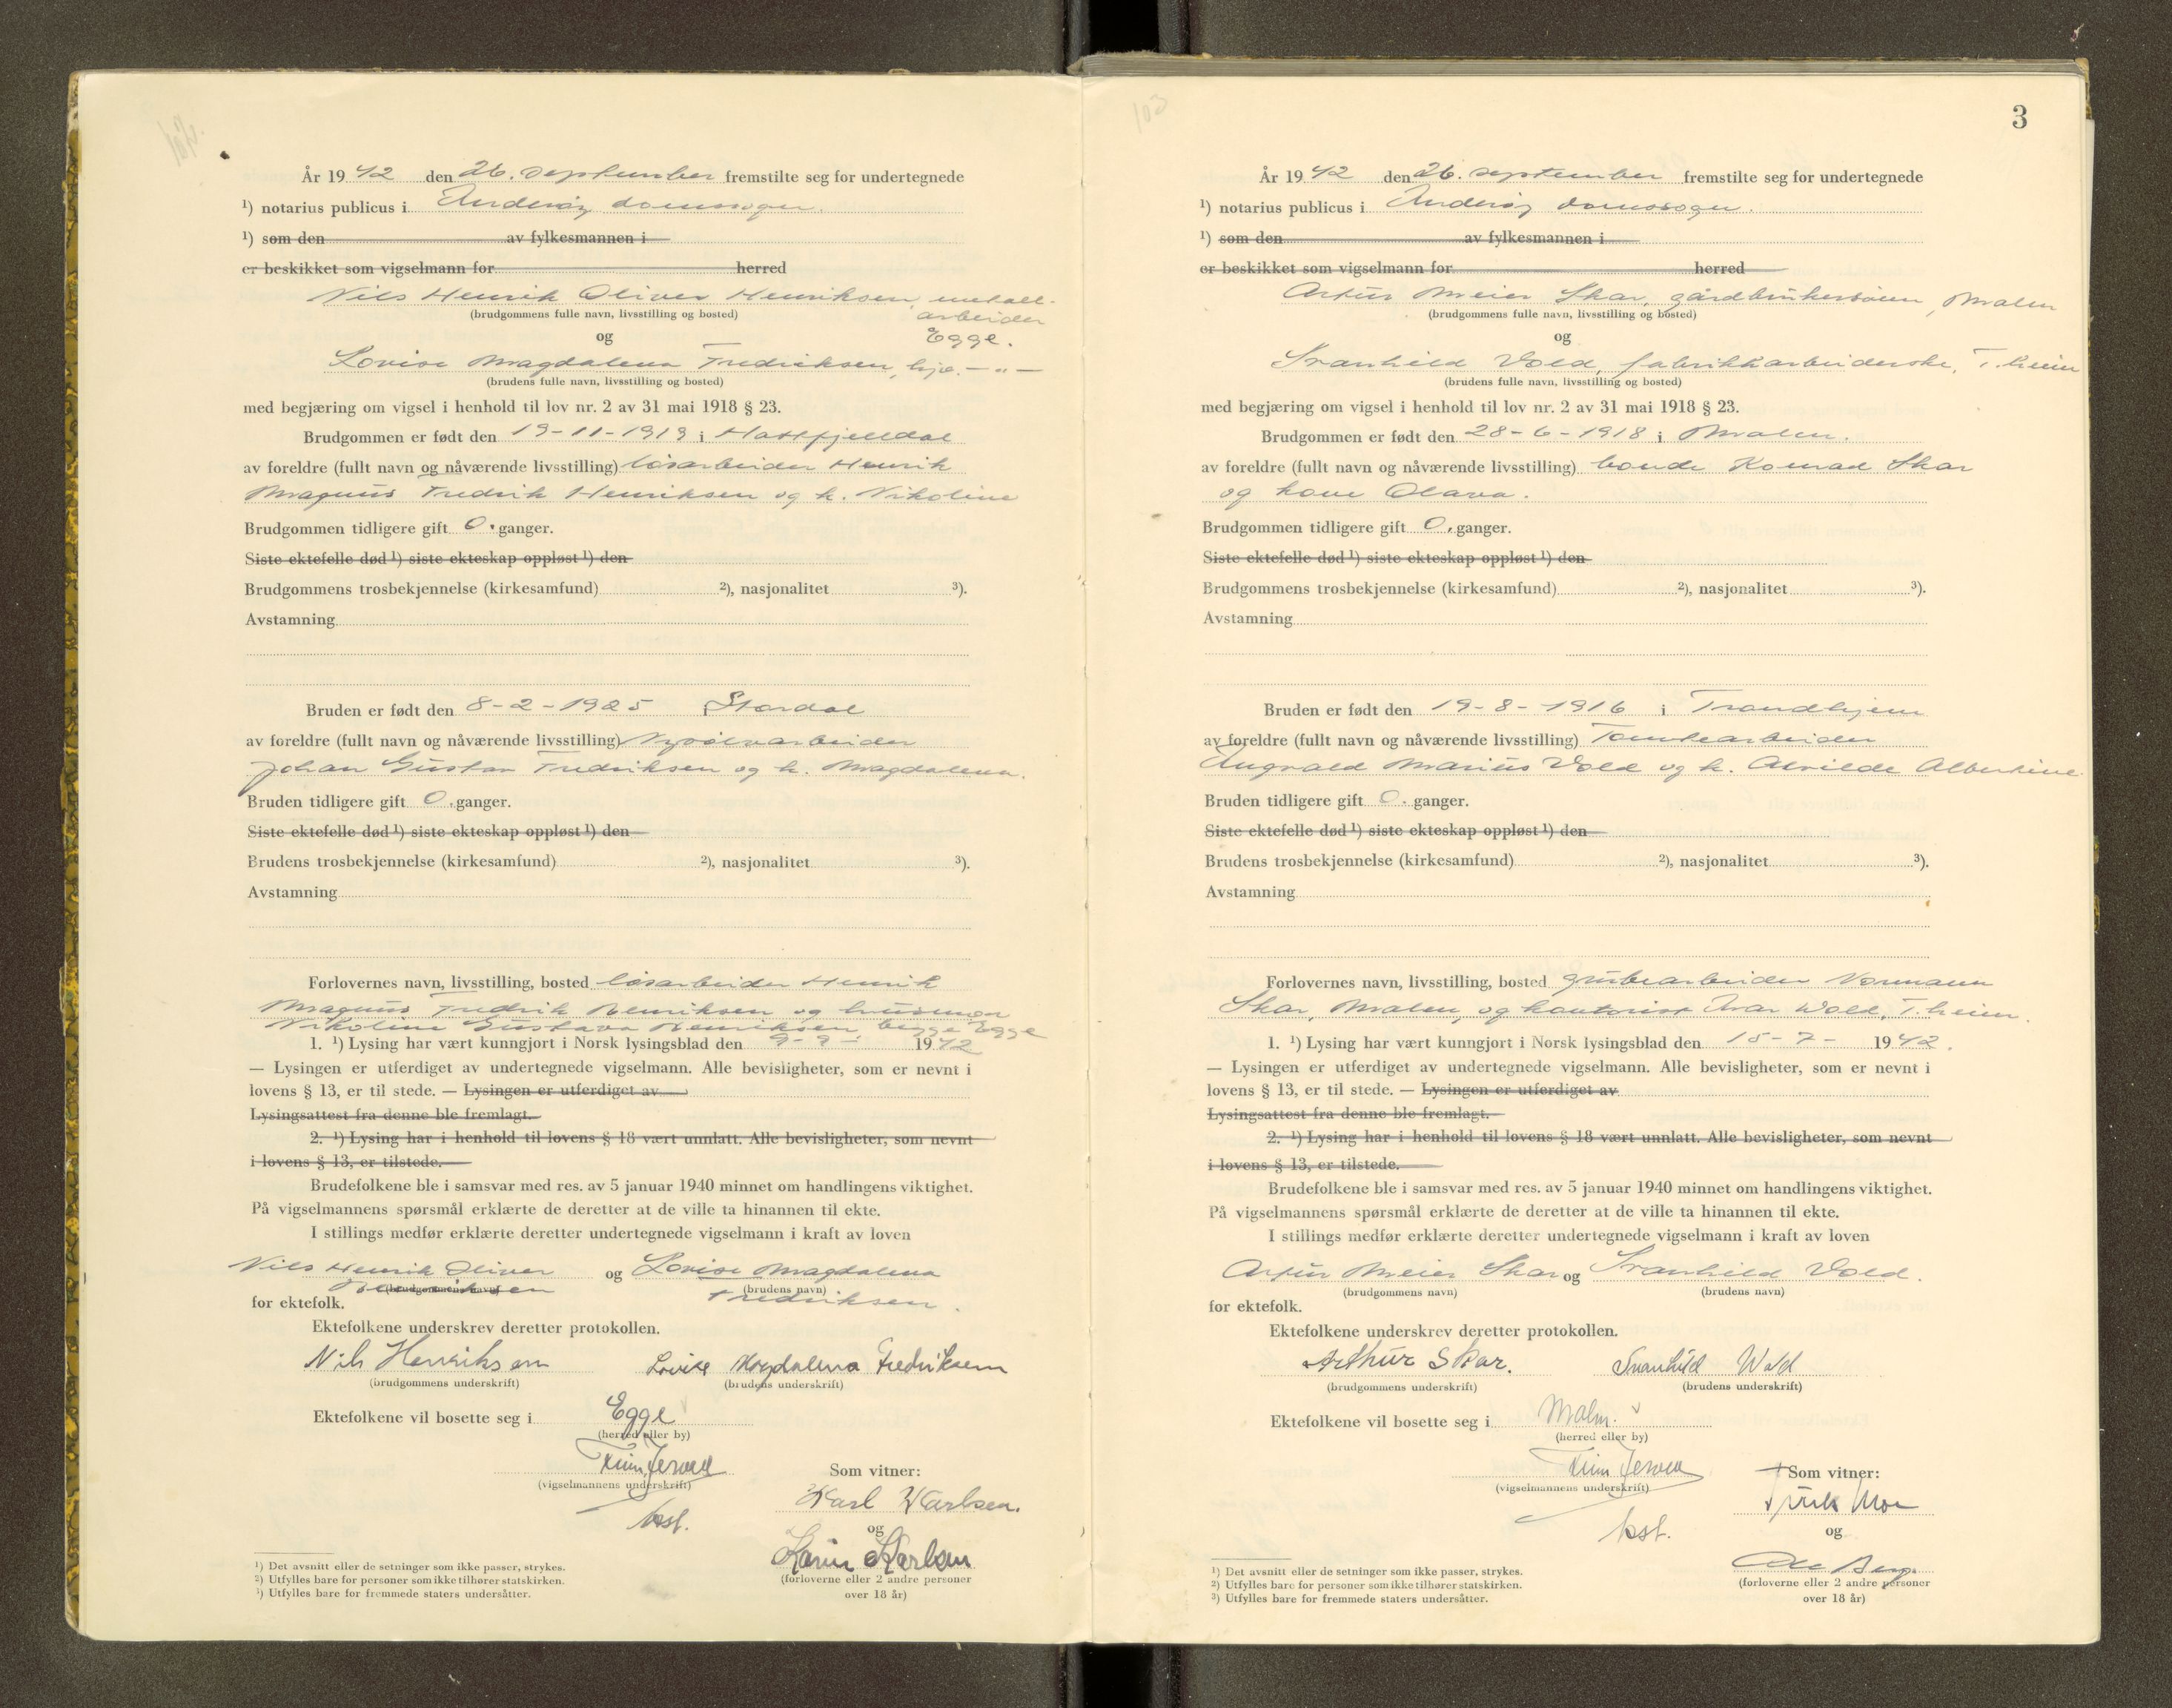 År 1942 den 26. september fremstilte seg for undertegnede
¹) notarius publicus i Inderøy domssogn.
¹) som den av fylkesmannen i
er beskikket som vigselmann for herred
Nils Henrik Oliver Henriksen, metall-
arbeider
(brudgommens fulle navn, livsstilling og bosted)
og Egge.
Lovise Magdalena Fredriksen, hje. — " —
(brudens fulle navn, livsstilling og bosted)
med begjæring om vigsel i henhold til lov nr. 2 av 31 mai 1918 § 23.
Brudgommen er født den 19-11-1919 i Hattfjelldal
av foreldre (fullt navn og nåværende livsstilling) løsarbeider Henrik
Magnus Fredrik Henriksen og h. Nikoline
Brudgommen tidligere gift 0. ganger.
Siste ektefelle død ¹) siste ekteskap oppløst ¹) den
Brudgommens trosbekjennelse (kirkesamfund) ²), nasjonalitet ³).
Avstamning
Bruden er født den 8-2-1925 i Stordal
av foreldre (fullt navn og nåværende livsstilling)
Johan Gustav Fredriksen og h. Magdalena.
Bruden tidligere gift 0. ganger.
Siste ektefelle død ¹) siste ekteskap oppløst ¹) den
Brudens trosbekjennelse (kirkesamfund) ²), nasjonalitet ³).
Avstamning
Forlovernes navn, livsstilling, bosted løsarbeider Henrik
Magnus Fredrik Henriksen og husmor
Nikoline Gustava Henriksen begge Egge
1. ¹) Lysing har vært kunngjort i Norsk lysingsblad den 9-9- 1942
— Lysingen er utferdiget av undertegnede vigselmann. Alle bevisligheter, som er nevnt i
lovens § 13, er til stede. — Lysingen er utferdiget av
Lysingsattest fra denne ble fremlagt.
2. ¹) Lysing har i henhold til lovens § 18 vært unnlatt. Alle bevisligheter, som nevnt
i lovens § 13, er tilstede.
Brudefolkene ble i samsvar med res. av 5 januar 1940 minnet om handlingens viktighet.
På vigselmannens spørsmål erklærte de deretter at de ville ta hinannen til ekte.
I stillings medfør erklærte deretter undertegnede vigselmann i kraft av loven
Nils Henrik Oliver og Lovise Magdalena
Henriksen Fredriksen.
(brudgommens navn) (brudens navn)
for ektefolk.
Ektefolkene underskrev deretter protokollen.
Nils Henriksen Lovise Magdalena Fredriksen
(brudgommens underskrift) (brudens underskrift)
Ektefolkene vil bosette seg i Egge
(herred eller by)
(vigselmannens underskrift)
Som vitner:
Karl Karlsen.
kst.
og
Karin Karlsen
(forloverne eller 2 andre personer
over 18 år)
¹) Det avsnitt eller de setninger som ikke passer, strykes.
²) Utfylles bare for personer som ikke tilhører statskirken.
³) Utfylles bare for fremmede staters undersåtter.
103
3
År 1942 den 26. september fremstilte seg for undertegnede
¹) notarius publicus i Inderøy domssogn.
¹) som den av fylkesmannen i
er beskikket som vigselmann for herred
Artur Meier Skar, gårdbrukersønn, Malm
(brudgommens fulle navn, livsstilling og bosted)
og
Svanhild Vold, fabrikkarbeiderske, T.heim
(brudens fulle navn, livsstilling og bosted)
med begjæring om vigsel i henhold til lov nr. 2 av 31 mai 1918 § 23.
Brudgommen er født den 28-6-1918 i Malm.
av foreldre (fullt navn og nåværende livsstilling) bonde Konrad Skar
og kone Olava.
Brudgommen tidligere gift 0. ganger.
Siste ektefelle død ¹) siste ekteskap oppløst ¹) den
Brudgommens trosbekjennelse (kirkesamfund) ²), nasjonalitet ³).
Avstamning
Bruden er født den 19-8-1916 i Trondhjem
av foreldre (fullt navn og nåværende livsstilling) Tomtearbeider
Ingvald Marius Vold og h. Alvilde Albertine.
Bruden tidligere gift 0. ganger.
Siste ektefelle død ¹) siste ekteskap oppløst ¹) den
Brudens trosbekjennelse (kirkesamfund) ²), nasjonalitet ³).
Avstamning
Forlovernes navn, livsstilling, bosted grubearbeider Normann
Skar, Malm, og kontorist Ivar Wold, T.heim.
1. ¹) Lysing har vært kunngjort i Norsk lysingsblad den 15-7- 1942.
— Lysingen er utferdiget av undertegnede vigselmann. Alle bevisligheter, som er nevnt i
lovens § 13, er til stede. — Lysingen er utferdiget av
Lysingsattest fra denne ble fremlagt.
2. ¹) Lysing har i henhold til lovens § 18 vært unnlatt. Alle bevisligheter, som nevnt
i lovens § 13, er tilstede.
Brudefolkene ble i samsvar med res. av 5 januar 1940 minnet om handlingens viktighet.
På vigselmannens spørsmål erklærte de deretter at de ville ta hinannen til ekte.
I stillings medfør erklærte deretter undertegnede vigselmann i kraft av loven
Artur Meier Skar og Svanhild Vold.
(brudgommens navn) (brudens navn)
for ektefolk.
Ektefolkene underskrev deretter protokollen.
Arthur Skar. Svanhild Wold
(brudgommens underskrift) (brudens underskrift)
Ektefolkene vil bosette seg i Malm.
(herred eller by)
(vigselmannens underskrift)
Som vitner:
Moe
kst.
og
(forloverne eller 2 andre personer
over 18 år)
¹) Det avsnitt eller de setninger som ikke passer, strykes.
²) Utfylles bare for personer som ikke tilhører statskirken.
³) Utfylles bare for fremmede staters undersåtter.